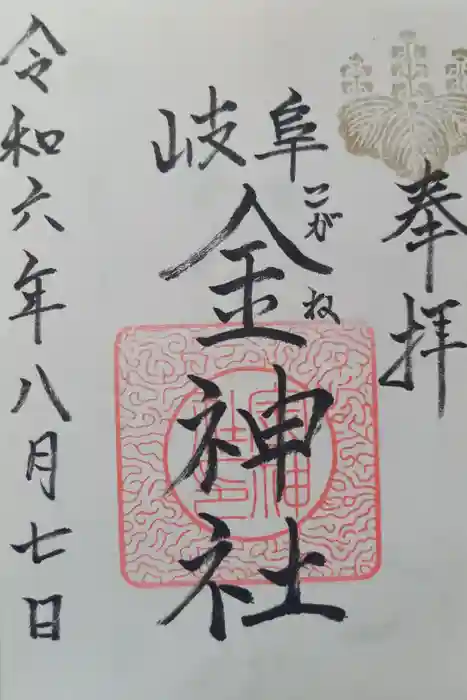 奉拝
岐阜
金神社
こがね
令和六年八月七日